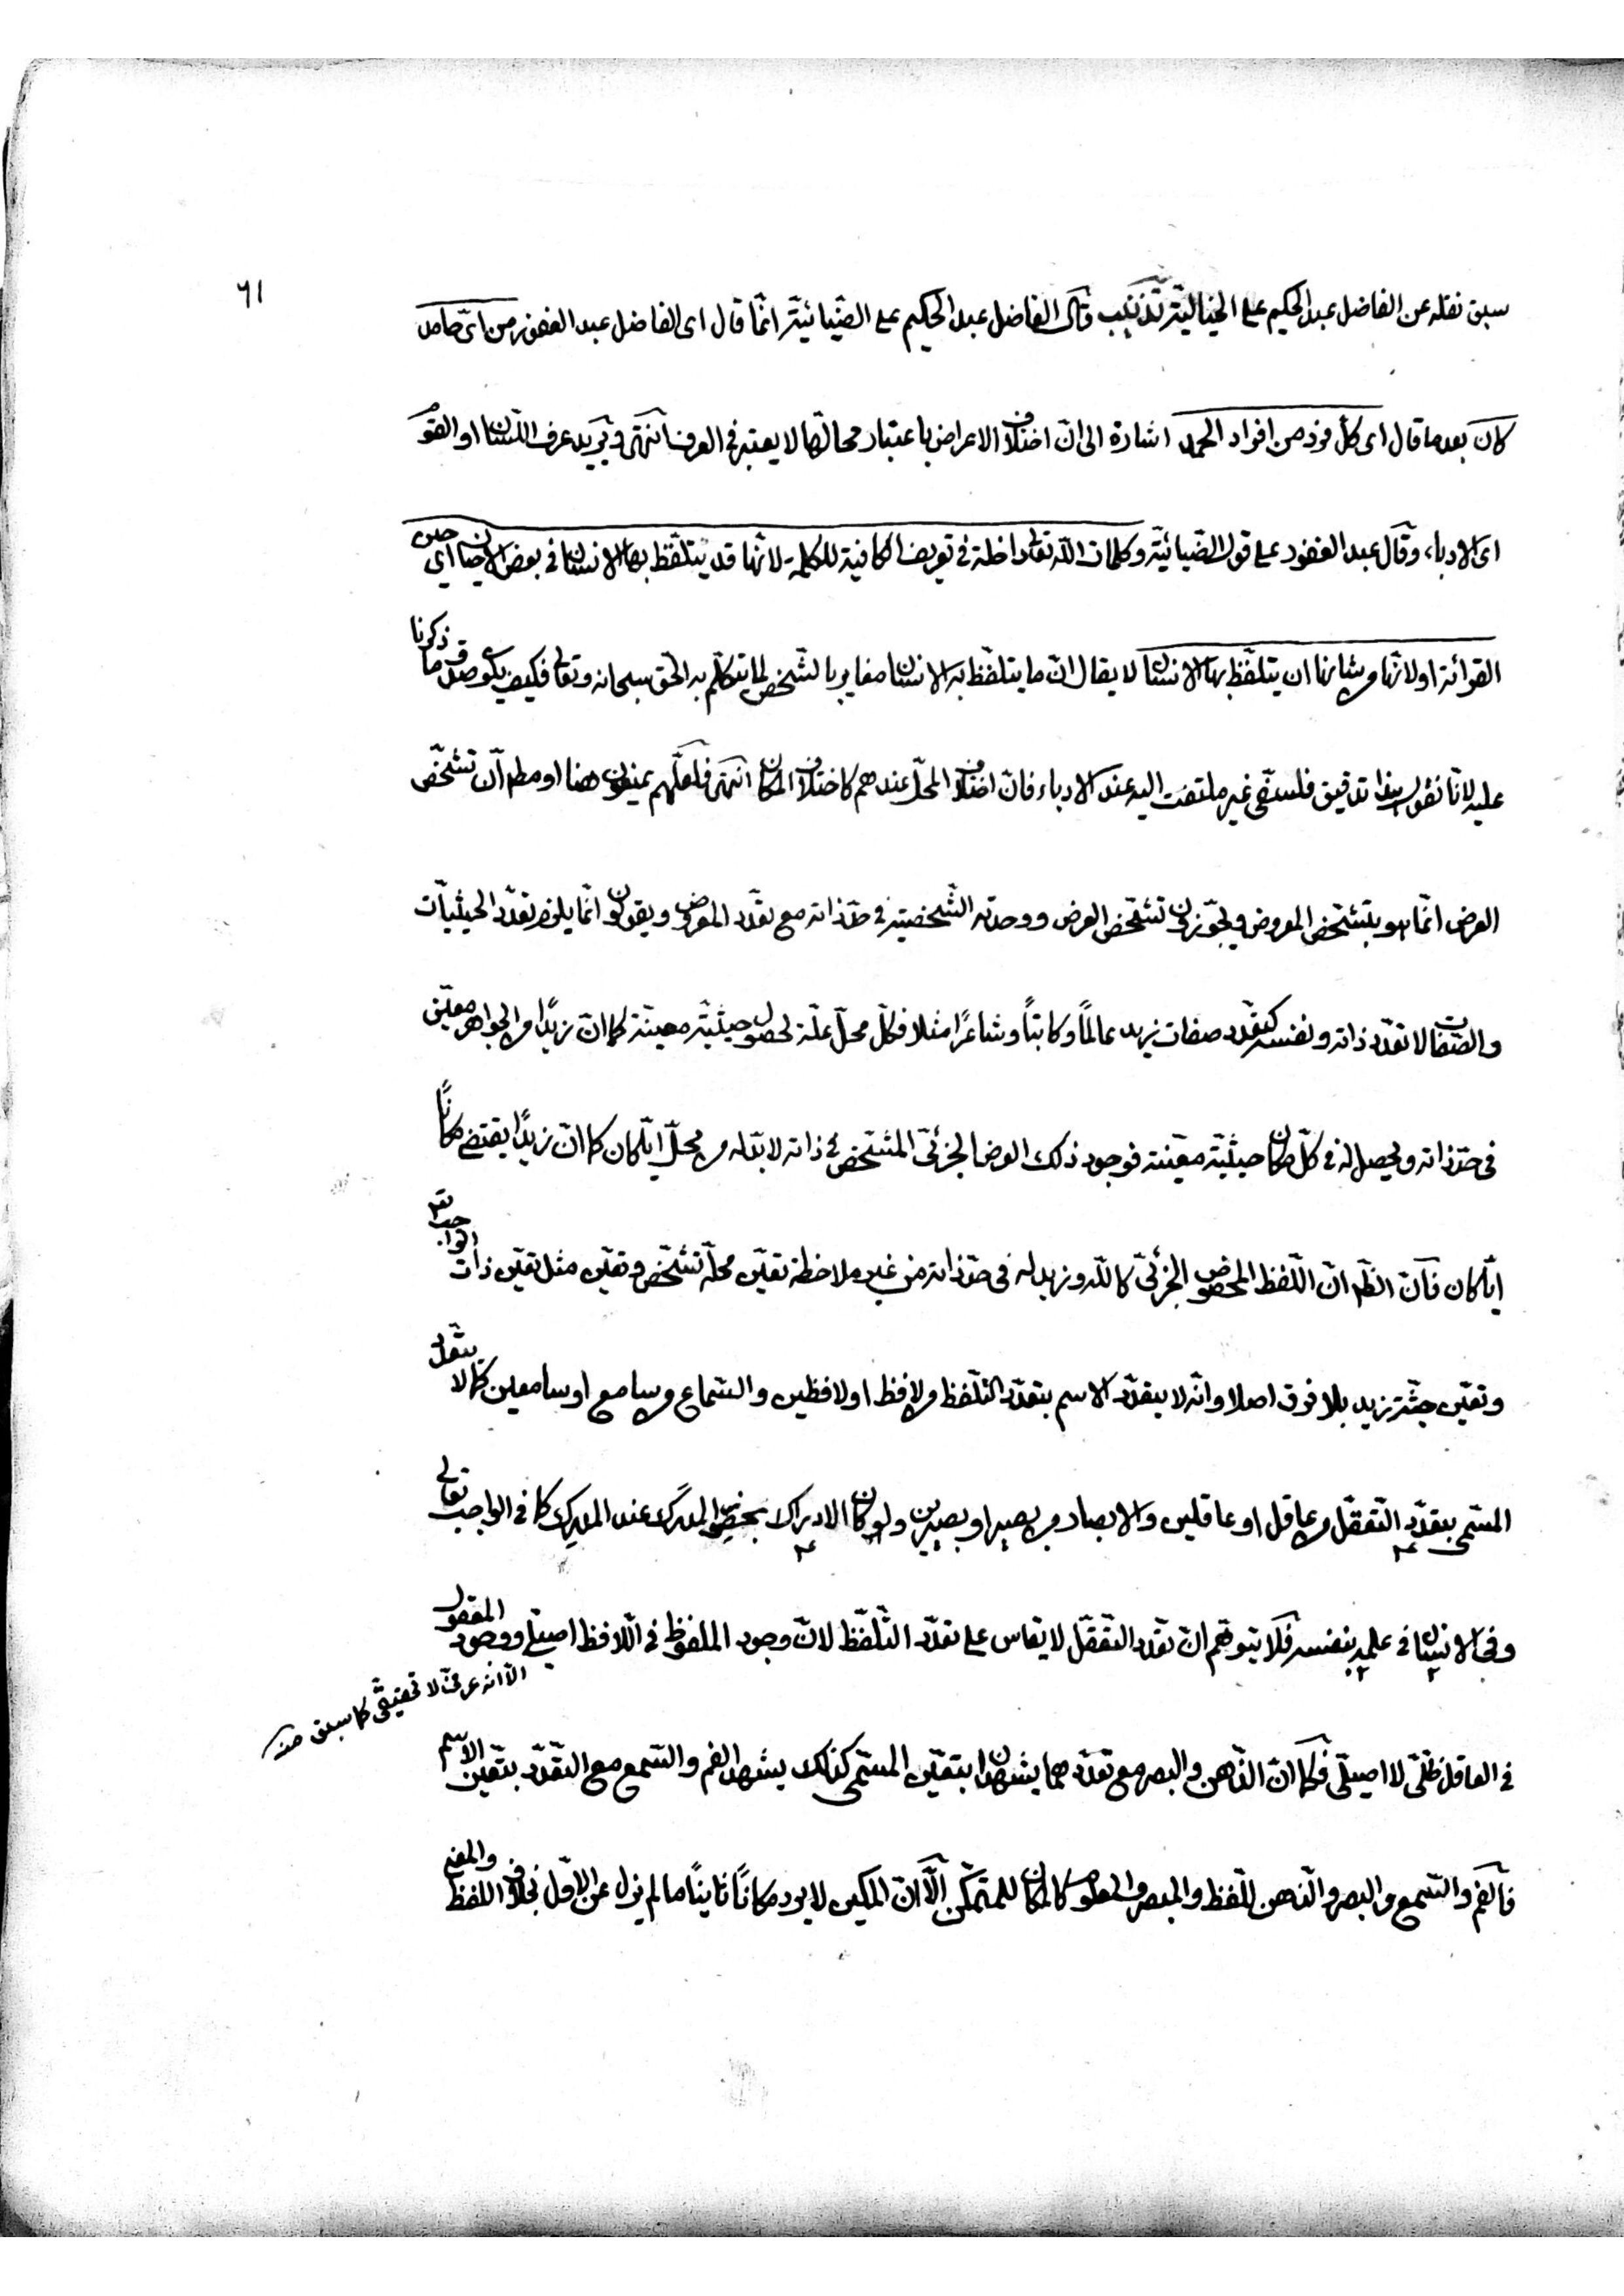 ٦١
سبق نقله عن الفاضل عبد الحكيم على الخيالية تذنيب قال الفاضل عبد الحكيم على الضيائية انما قال اى الفاضل عبد الغفور من اى حامد
كان بعد ما قال اى كل فرد من افراد الحمد اشارة الى ان اختلاف الاعراض باعتبار محالها لا يعتبر فى العرف انتهى ويريد عرف اللسان او القوم
اى الادباء وقال عبد الغفور على قول الضيائية وكلمات الله تعالى داخلة فى تعريف الكافية للكلمة لانها قد يتلفظ بها الانسان فى بعض الاحيان اى حين
القرائة او لانها من شانها ان يتلفظ بها الانسان لا يقال ان ما يتلفظ به الانسان مغاير بالشخص لما تكلم به الحق سبحانه وتعالى فكيف يصدق ما ذكرنا
عليه لانا نقول هذا تدقيق فلسفى غير ملتفت اليه عند الادباء فان اختلاف المحل عندهم كاختلاف المكان انتهى فلعلهم يمنعون هنا او مطم ان تشخص
العرض انما هو بتشخص المعروض ويجوزون تشخص العرض ووحدته الشخصية فى حد ذاته مع تعدد المعروض ويقولون انما يلزم تعدد الحيثيات
والصفات لا تعدد ذاته ونفسه كتعدد صفات زيد عالمًا وكاتبًا وشاعرًا مثلا فكل محل علة لحصول حيثية معينة كما ان زيدًا من الجواهر معين
فى حد ذاته ويحصل له فى كل مكان حيثية معينة فوجود ذلك العرض الجزئى المشخص فى ذاته لا بد له من محل ايا كان كما ان زيدًا يقتضى مكانًا
ايا كان فان الظم ان اللفظ المخصوص الجزئى كالله وزيد له فى حد ذاته من غير ملاحظة تعين محله تشخص وتعين مثل تعين ذات الواجب تعالى
وتعين جثة زيد بلا فرق اصلا وانه لا يتعدد الاسم بتعدد التلفظ من لافظ او لافظين والسماع من سامع او سامعين كما لا يتعدد
المسمى بتعدد التعقل من عاقل او عاقلين والابصار من بصير او بصيرين ولو كان الادراك بحضور المدرَك عند المدرِك كما فى الواجب تعالى
وفى الانسان فى علمه بنفسه فلا يتوهم ان تعدد التعقل لا يقاس على تعدد التلفظ لان وجود الملفوظ فى اللافظ اصيلى ووجود المعقول
الا انه عرفى لا تحقيقى كما سبق منه
فى العاقل ظلى لا اصيلى فكما ان الذهن والبصر مع تعددهما يشهدان بتعين المسمى كذلك يشهد الفم والسمع مع التعدد بتعين الاسم
فالفم والسمع والبصر والذهن للفظ والمبصر والمعلوم كالمكان للمتمكن الا ان المكين لا يرد مكانًا ثانيًا ما لم يزل عن الاول بخلاف اللفظ والمعنى